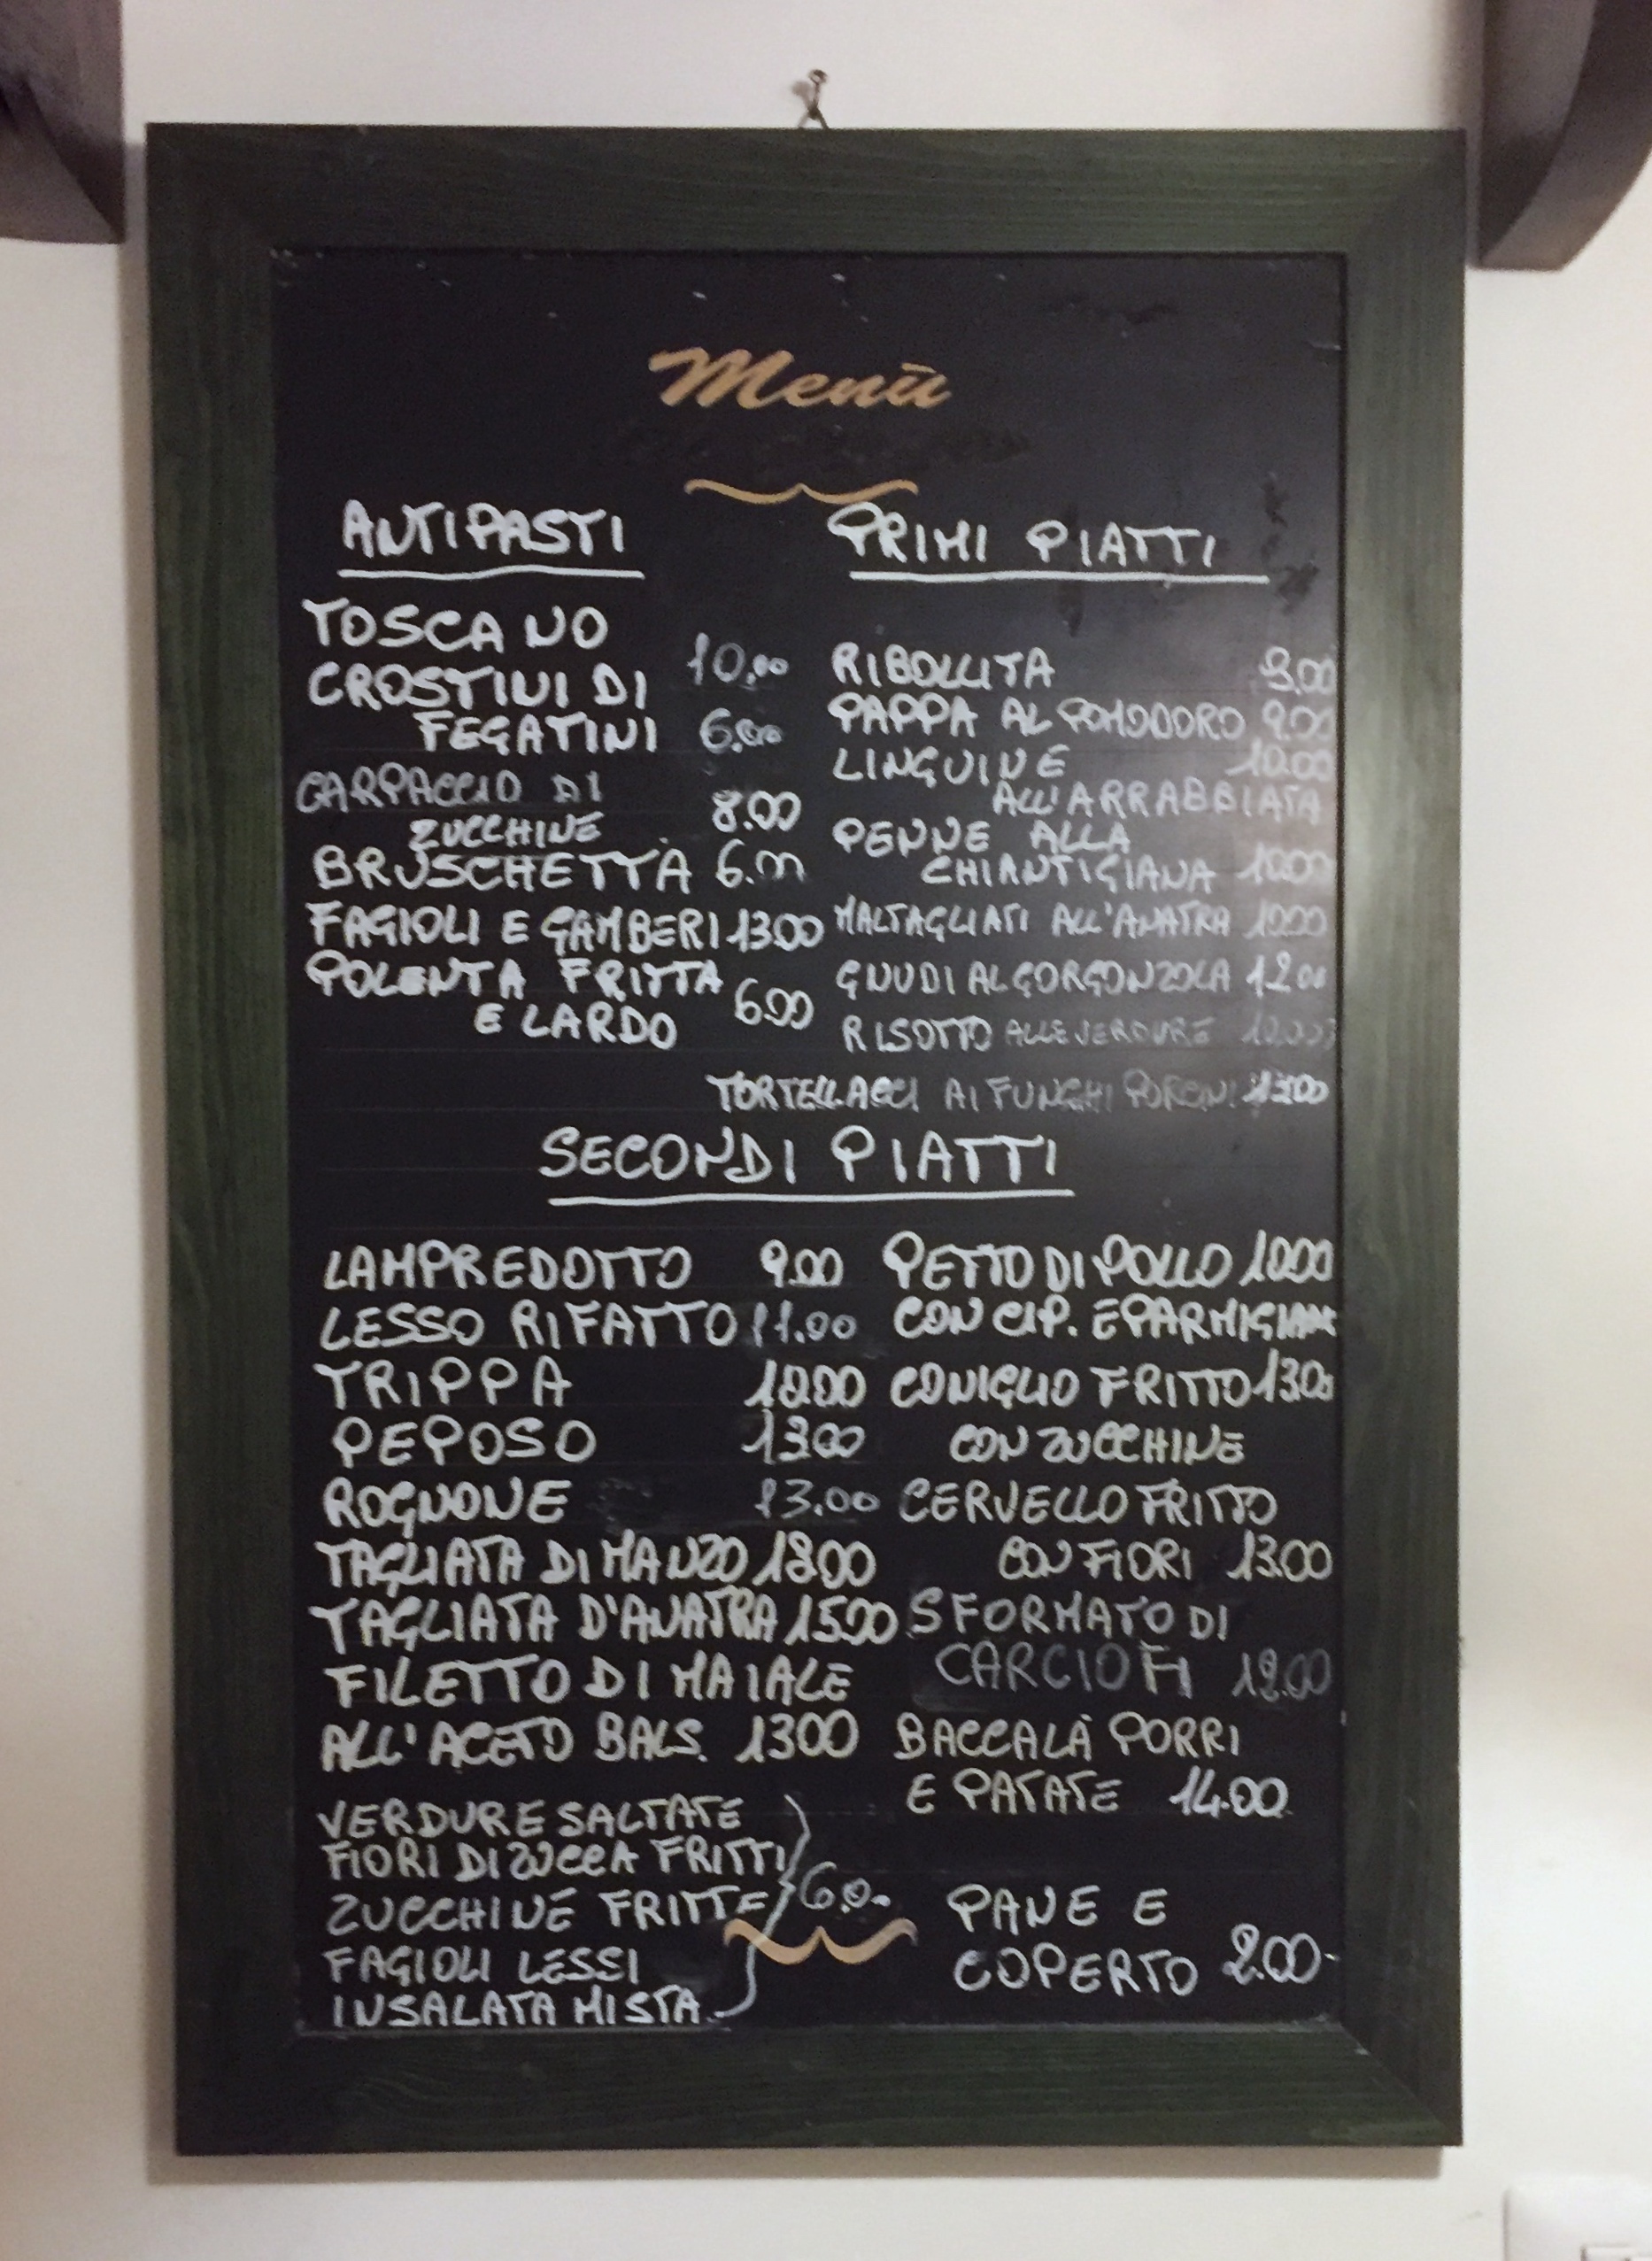 Menù
ANTIPASTI
TOSCANO 10.00
CROSTINI DI
FEGATINI 6.00
CARPACCIO DI
ZUCCHINE 8.00
BRUSCHETTA 6.00
FAGIOLI E GAMBERI 13.00
POLENTA FRITTA
E LARDO 6.00
PRIMI PIATTI
RIBOLLITA 9.00
PAPPA AL POMODORO 9.00
LINGUINE 10.00
ALL'ARRABBIATA
PENNE ALLA
CHIANTIGIANA 10.00
MALTAGLIATI ALL'ANATRA
GNUDI AL GORGONZOLA 12.00
RISOTTO ALLE VERDURE
TORTELLACCI AI FUNGHI PORCINI 13.00
SECONDI PIATTI
LAMPREDOTTO 9.00
LESSO RIFATTO 11.00
TRIPPA 10.00
PEPOSO 13.00
ROGNONE 13.00
TAGLIATA DI MANZO 18.00
TAGLIATA D'ANATRA 15.00
FILETTO DI MAIALE
ALL'ACETO BALS. 13.00
VERDURE SALTATE
FIORI DI ZUCCA FRITTI
ZUCCHINE FRITTE 6.0
FAGIOLI LESSI
INSALATA MISTA
PETTO DI POLLO 10.00
CON CIP. E PARMIGIANO
CONIGLIO FRITTO 13.00
CON ZUCCHINE
CERVELLO FRITTO
CON FIORI 13.00
SFORMATO DI
CARCIOFI
BACCALÀ PORRI
E PATATE 14.00
PANE E
COPERTO 2.00